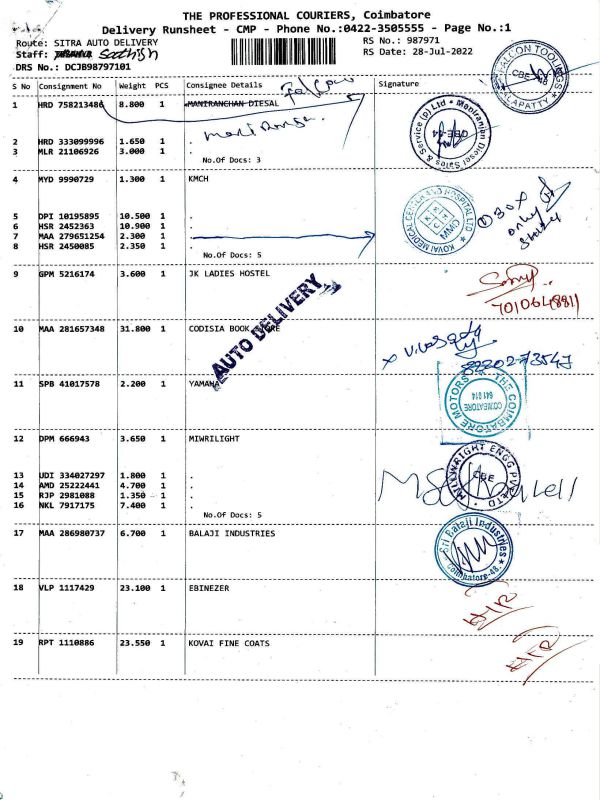 THE PROFESSIONAL COURIERS, Coimbatore
Delivery Runsheet - CMP - Phone No.:0422-3505555 - Page No.:1
Route: SITRA AUTO DELIVERY RS No.: 987971
Staff: Sathish RS Date: 28-Jul-2022
DRS No.: DCJB98797101
S No Consignment No Weight PCS Consignee Details Signature
Falcon
1 HRD 758213486 8.800 1 MANIRANCHAN DIESAL
FALCON TOOLINGS CBE-48 KALAPATTY
Maniranjan Diesel Sales & Service (p) Ltd CBE-44
2 HRD 333099996 1.650 1 .
3 MLR 21106926 3.000 1 .
No.Of Docs: 3
4 MYD 9990729 1.300 1 KMCH
KOVAI MEDICAL CENTER AND HOSPITAL LTD MMD
30 X only
5 DPI 10195895 10.500 1 .
6 HSR 2452363 10.900 1 .
7 MAA 279651254 2.300 1 .
8 HSR 2450085 2.350 1 .
No.Of Docs: 5
9 GPM 5216174 3.600 1 JK LADIES HOSTEL
AUTO DELIVERY
10 MAA 281657348 31.800 1 CODISIA BOOK STORE
11 SPB 41017578 2.200 1 YAMAHA
THE COIMBATORE MOTORS COIMBATORE 641 014
12 DPM 666943 3.650 1 MIWRILIGHT
MILLWRIGHT ENGG PVT LTD CBE
13 UDI 334027297 1.800 1 .
14 AMD 25222441 4.700 1 .
15 RJP 2981088 1.350 1 .
16 NKL 7917175 7.400 1 .
No.Of Docs: 5
17 MAA 286980737 6.700 1 BALAJI INDUSTRIES
Sri Balaji Industries Coimbatore-48.
18 VLP 1117429 23.100 1 EBINEZER
19 RPT 1110886 23.550 1 KOVAI FINE COATS